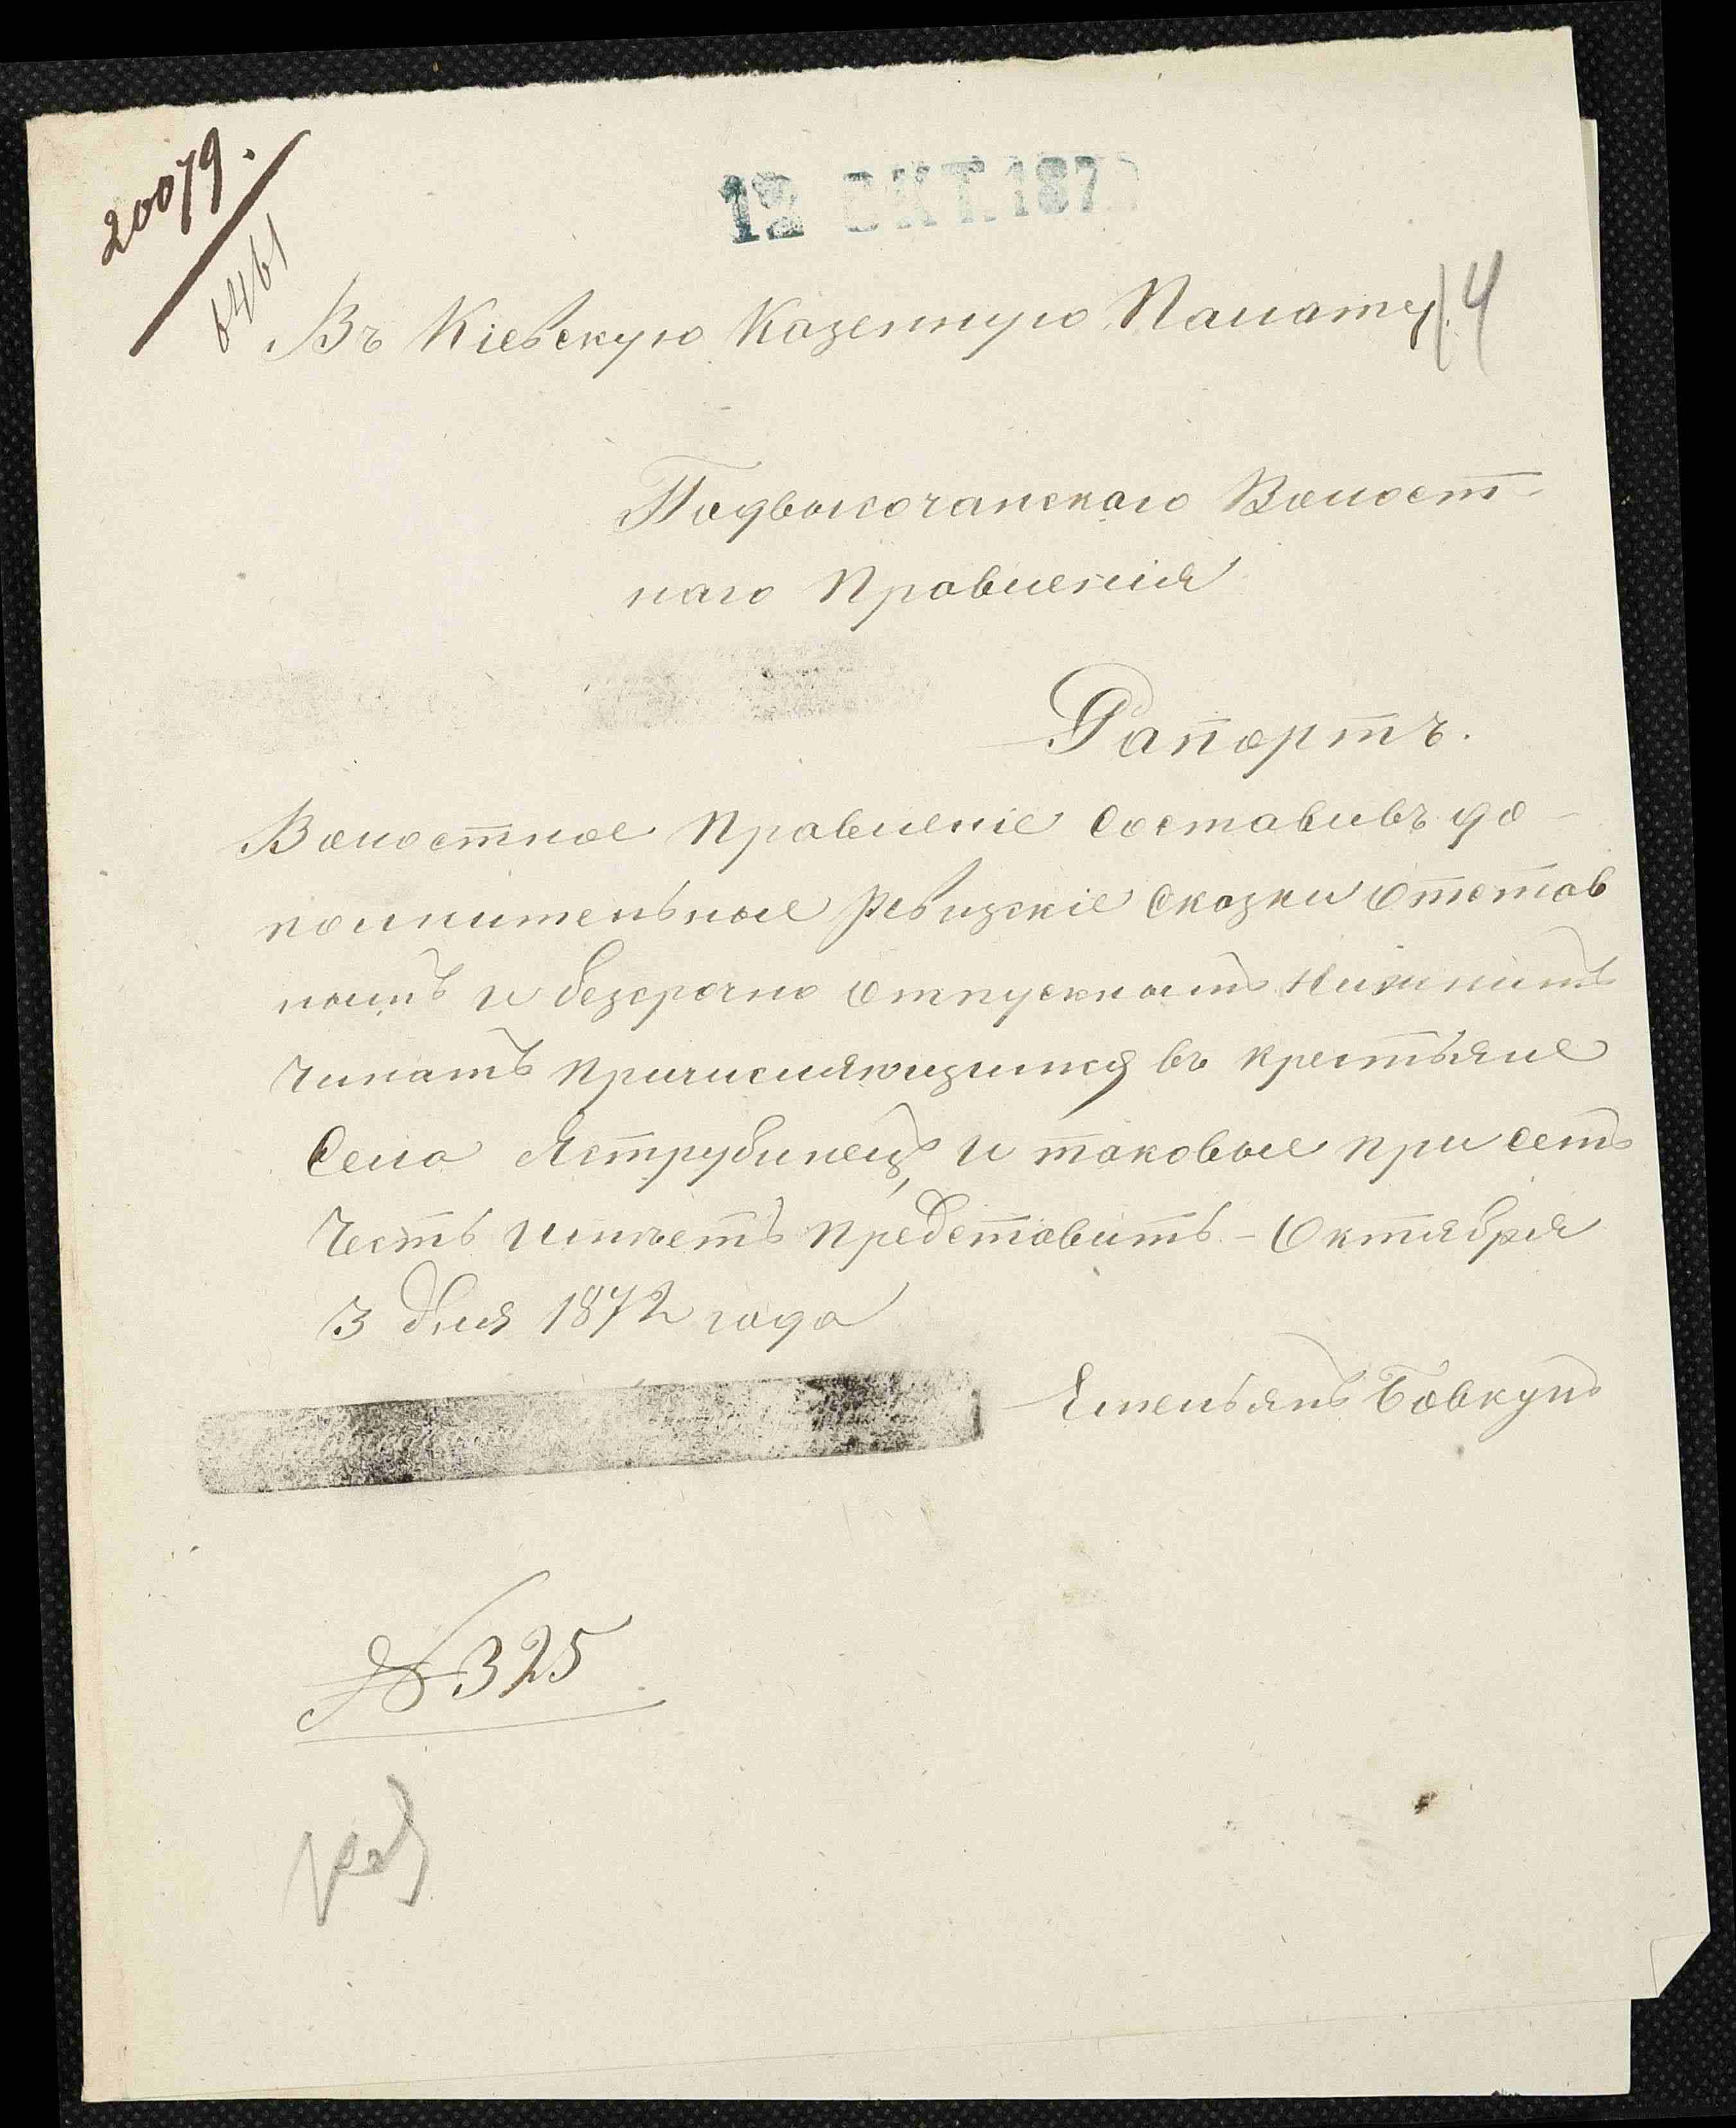 20079.
6461
12 ОКТ. 187
Въ Кіевскую Казенную Палату
14
Подвысочанскаго Волост-
наго Правленія
Рапортъ.
Волостное Правленіе Составивъ до-
полнительные Ревизскіе Сказки Отстав
нымъ и безсрочно Отпускнымъ Нижнимъ
Чинамъ Причисляющимся въ крестьяне
Села Яструбинецъ, и таковые при семъ
Честь имѣетъ Представить. - Октября
3 дня 1872 года
Емельянъ Бовкунъ
№ 325